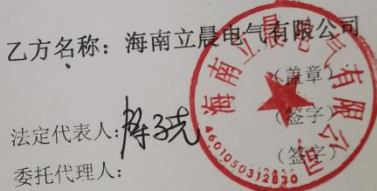 乙方名称：海南立晨电气有限公司
（盖章）
法定代表人：陈子亮（签字）
委托代理人：（签字）
海南立晨电气有限公司
4601050312830